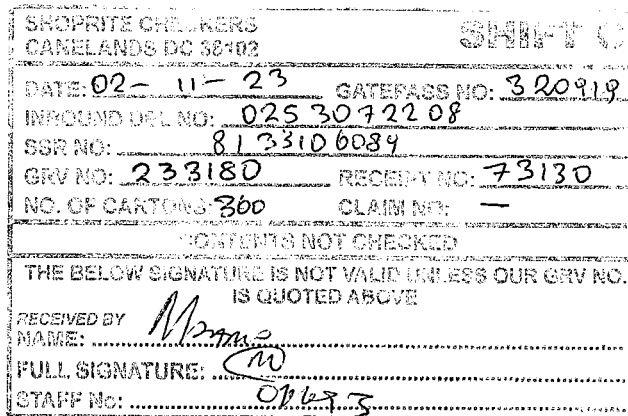 SHOPRITE CHECKERS SHIFT C
CANELANDS DC 38102
DATE: 02-11-23 GATEPASS NO: 320919
INBOUND DEL NO: 0253072208
SSR NO: 8133106089
GRV NO: 233180 RECEIPT NO: 73130
NO. OF CARTONS: 360 CLAIM NO: —
CONTENTS NOT CHECKED
THE BELOW SIGNATURE IS NOT VALID UNLESS OUR GRV NO.
IS QUOTED ABOVE
RECEIVED BY
NAME:
FULL SIGNATURE:
STAFF No: